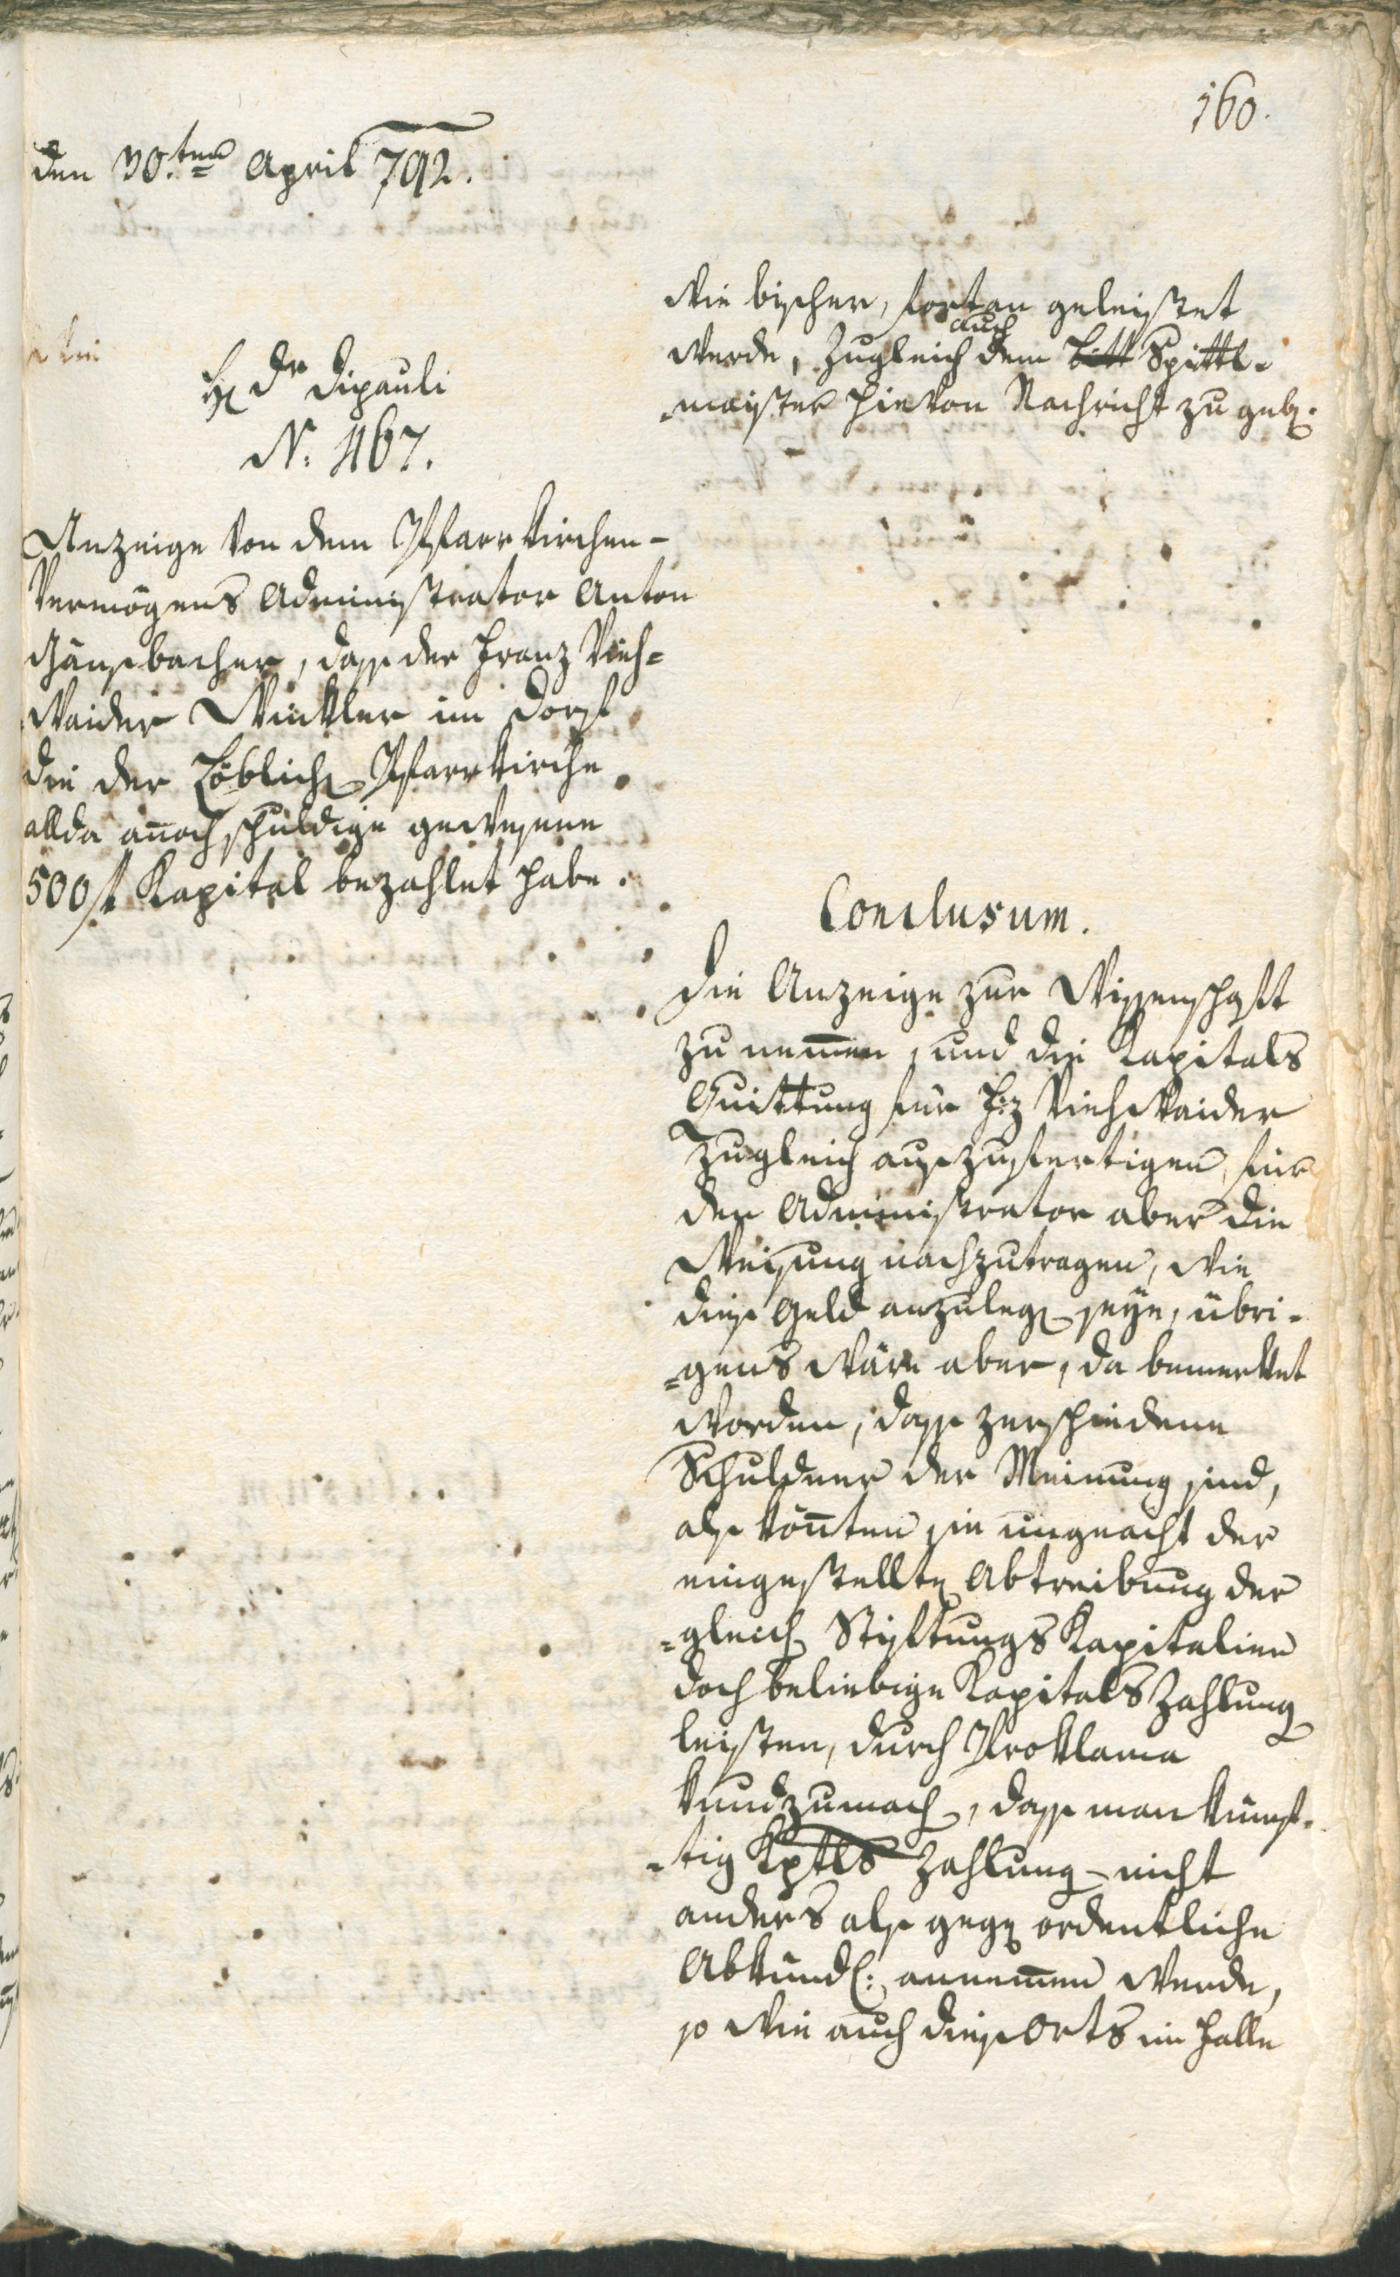 160.
den 30.ten April 792.
Hr Dr Dipauli
N. 467.
Anzeige von dem Pfarrkirchen-
Vermögens Administrator Anton
Gänsbacher, dass der Franz Vieh-
waider Winkler im Dorf
die der Löblichen Pfarrkirche
allda annoch schuldige gewesene
500 fl Kapital bezahlet habe.
wie bisher, fortan geleistet
werde, zugleich auch dem Spittl-
maister hievon Nachricht zu geben.
Conclusum.
Die Anzeige zur Wissenschaft
zu nemmen, und die Kapitals
Quittung für Frz Viehwaider
zugleich auszufertigen, für
den Administrator aber die
Weisung nachzutragen, wie
dies Geld anzulegen seye, übri-
gens wäre aber, da bemerket
worden, dass zerschiedene
Schuldner der Meinung sind,
als könnten sie ungeacht der
eingestellten Abtreibung der
gleichen Stiftungs Kapitalien
doch beliebige Kapitals Zahlung
leisten, durch Proklama
kundzumachen, dass man künf-
tig Kptls Zahlung nicht
anders als gegen ordentliche
Abkünd: annemmen werde,
so wie auch diesorts im Falle